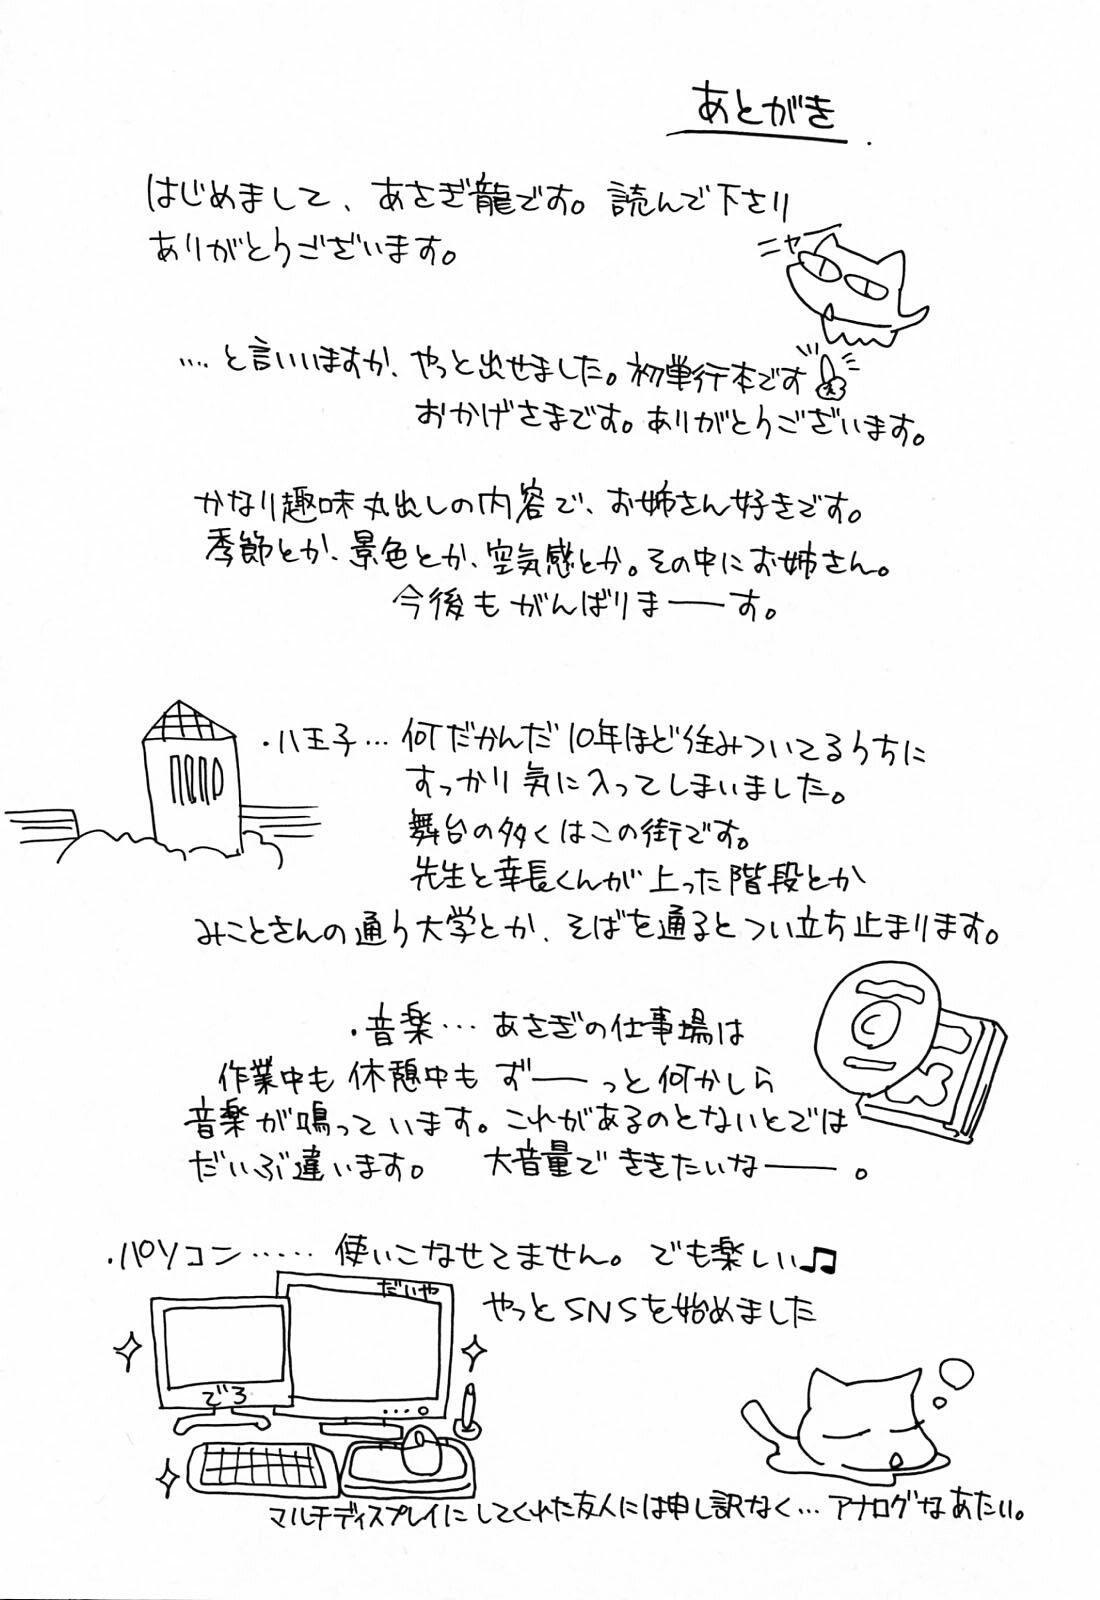 あとがき
はじめまして、あさぎ龍です。読んで下さり
ありがとうございます。
ニャー
‥‥と言いいますか、やっと出せました。初単行本です
おかげさまです。ありがとうございます。
かなり趣味丸出しの内容で、お姉さん好きです。
季節とか、景色とか、空気感とか。その中にお姉さん。
今後もがんばりまーーす。
・八王子…何だかんだ10年ほど住みついてるうちに
すっかり気に入ってしまいました。
舞台の多くはこの街です。
先生と幸長くんが上った階段とか
みことさんの通う大学とか、そばを通るとつい立ち止まります。
・音楽…あさぎの仕事場は
作業中も休憩中もずーーっと何かしら
音楽が鳴っています。これがあるのとないとでは
だいぶ違います。 大音量でききたいなーー。
・パソコン……使いこなせてません。でも楽しい♫
やっとSNSを始めました
だいや
でろ
マルチディスプレイにしてくれた友人には申し訳なく…アナログなあたい。